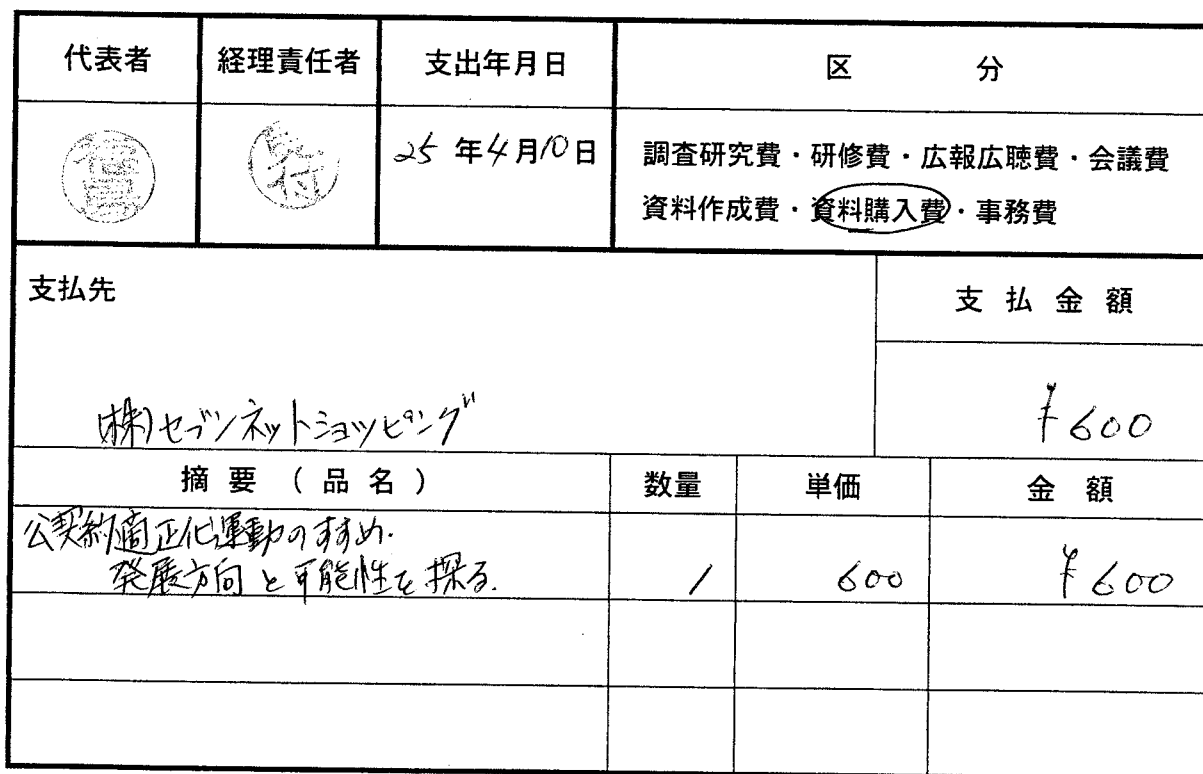 代表者 経理責任者 支出年月日 区分
25年4月10日
調査研究費・研修費・広報広聴費・会議費
資料作成費・資料購入費・事務費
支払先
支払金額
(株)セブンネットショッピング
¥600
摘要(品名) 数量 単価 金額
公契約適正化運動のすすめ.
発展方向と可能性を探る. 1 600 ¥600